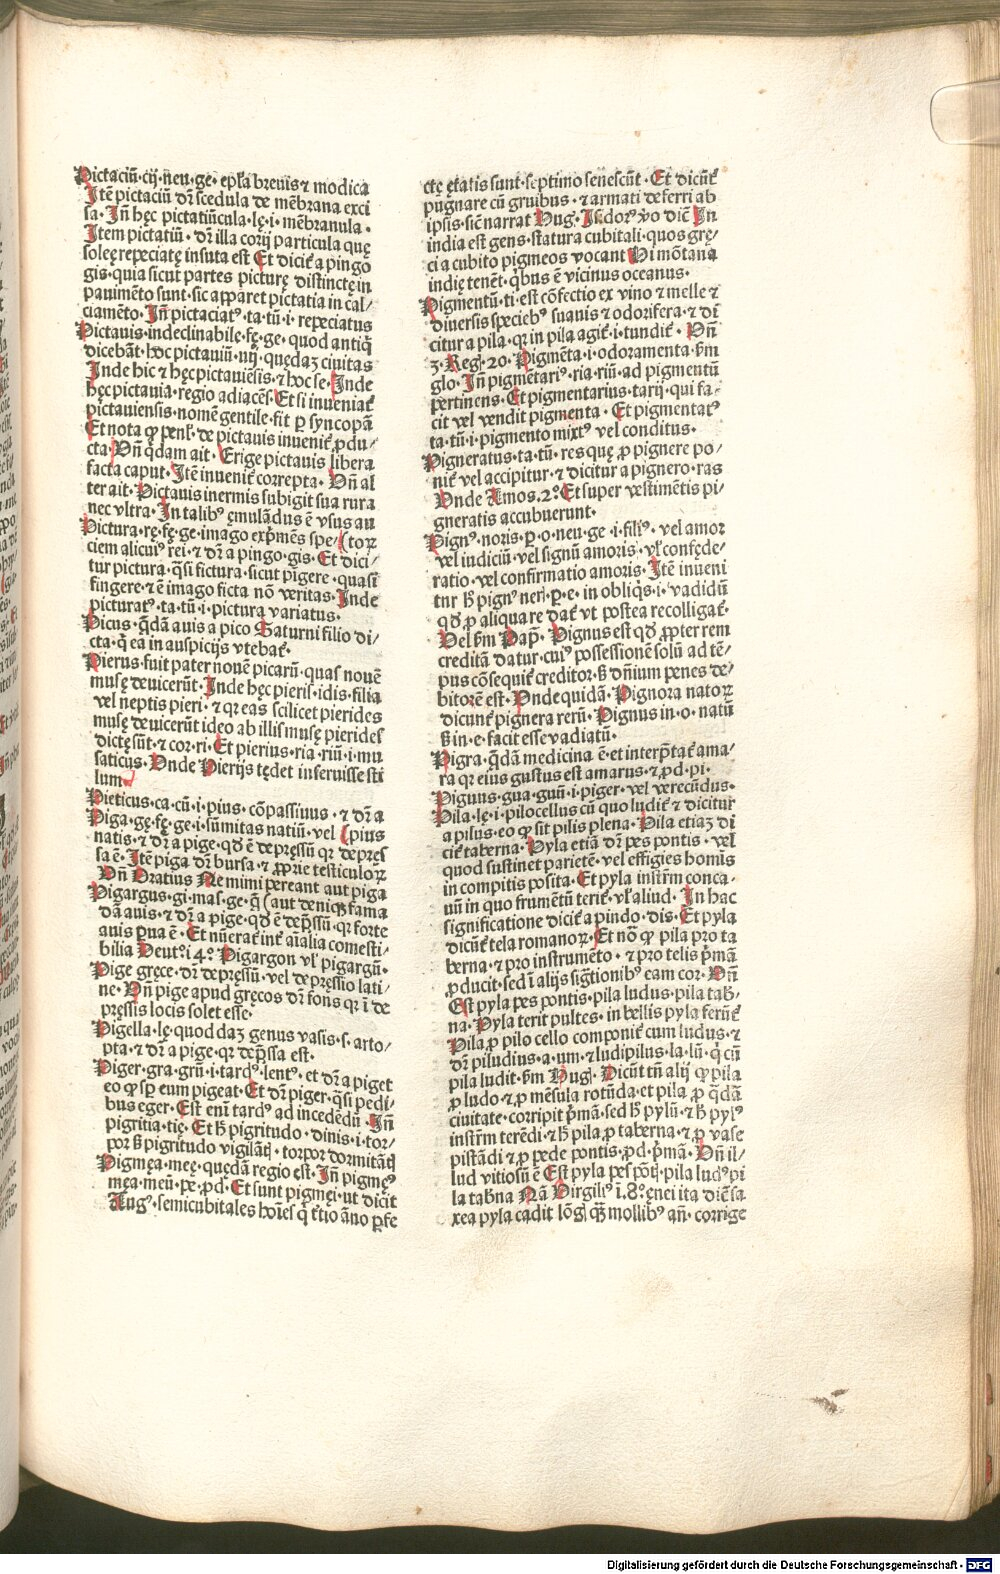 Pictaciũ·cij·neu·ge·ep̃la breuis ⁊ modica
Itẽ pictaciũ dr̃ scedula de mẽbrana exci
sa·Iñ hęc pictatiũcula·lę·i·mẽbranula·
Item pictatiũ·dr̃ illa corij particula quę
soleę repeciatę insuta est Et dicit̃ a pingo
gis·quia sicut partes picturę distinctę in
pauimẽto sunt·sic apparet pictatia in cal/
ciamẽto·Iñ pictaciatꝰ·ta·tũ·i·repeciatus
Pictauis·indeclinabile·fę·ge·quod antiq̃
dicebãt·hoc pictauiũ·uij·quędaꝫ ciuitas
Inde hic ⁊ hęc pictauiẽsis·⁊ hoc se·Inde
hęc pictauia·regio adiacẽs·Et si inueniat̃
pictauiensis·nomẽ gentile·fit ꝑ syncopã
Et nota ꝙ penl̃·de pictauis inuenit̃ ꝓdu/
cta·Vñ q̃dam ait·Erige pictauis libera
facta caput·Itẽ inuenit̃ correpta·Vñ al
ter ait·Pictauis inermis subigit sua rura
nec vltra·In talibꝰ ęmulãdus ẽ vsus au
Pictura·rę·fę·ge·imago exp̃mẽs spe/(toꝝ
ciem alicuiꝰ rei·⁊ dr̃ a pingo·gis·Et dici/
tur pictura·q̃si fictura·sicut pĩgere·quasi
fingere·⁊ ẽ imago ficta nõ veritas·Inde
picturatꝰ·ta·tũ·i·pictura variatus·
Picus·q̃dã auis a pico Saturni filio di/
cta·q̃ ea in auspicijs vtebat̃·
Pierus·fuit pater nouẽ picarũ·quas nouẽ
musę deuicerũt·Inde hęc pieris·idis·filia
vel neptis pieri·⁊ qr eas scilicet pierides
musę deuicerũt ideo ab illis musę pierides
dictę sũt·⁊ cor·ri·Et pierius·ria·riũ·i·mu
saticus·Vnde Pierijs tędet inseruisse sti
lum
Pieticus·ca·cũ·i·pius·cõpassiuus·⁊ dr̃ a
Piga·gę·fę·ge·i·sũmitas natiũ·vel (pius
natis·⁊ dr̃ a pige·qđ ẽ depręssũ qr depręs
sa ẽ·Itẽ piga dr̃ bursa·⁊ ꝓprie testiculoꝝ
Vñ Oratius Ne mimi pereant aut piga
Pigargus·gi·mas·ge·q̃ (aut deniqꝫ fama
dã auis·⁊ dr̃ a pige·qđ ẽ dep̃ssũ·qr forte
auis ꝑua ẽ·Et nũerat̃ int̃ aĩalia comesti/
bilia Deut̃·i4·Pigargon vl̃ pigargũ·
Pige gręce·dr̃ dep̃ssũ·vel depręssio lati/
ne·Vñ pige apud gręcos dr̃ fons qr ĩ de
pręssis locis solet esse·
Pigella·lę·quod daꝫ genus vasis·s·arto/
pta·⁊ dr̃ a pige·qr dep̃ssa est·
Piger·gra·grũ·i·tardꝰ·lentꝰ·et dr̃ a piget
eo ꝙ sp̃ eum pigeat·Et dr̃ piger·q̃si pedi/
bus eger·Est enĩ tardꝰ ad incedẽdũ·Iñ
pigritia·tię·Et h̃ pigritudo·dinis·i·tor/
por ß pigritudo vigilãtiũ·torpor dormitãtiũ
Pigmęa·meę·quędã regio est·Iñ pigmęꝰ
męa·meũ·pe·ꝓd·Et sunt pigmęi·ut dicit
Augꝰ·semicubitales hoĩes q̃ t̃tio ãno ꝑfe
ctę ętatis sunt·septimo senescũt·Et dicũt̃
pugnare cũ gruibus·⁊ armati deferri ab
ipsis·sic narrat Hug·Isidorꝰ ṽo dic̃ In
india est gens·statura cubitali·quos grę/
ci a cubito pigmeos vocant Hi mõtana
indię tenẽt·q̃bus ẽ vicinus oceanus·
Pigmentũ·ti·est cõfectio ex vino ⁊ melle ⁊
diuersis speciebꝰ suauis ⁊ odorifera·⁊ dĩ
citur a pila·qr in pila agit̃·i·tundit̃·Vñ
3·Reg·20·Pigmẽta·i·odoramenta ßm
glo·Iñ pigmẽtariꝰ·ria·riũ·ad pigmentũ
pertinens·Et pigmentarius·tarij·qui fa/
cit vel vendit pigmenta·Et pigmentatꝰ
ta·tũ·i·pigmento mixtꝰ vel conditus·
Pigneratus·ta·tũ·res quę ꝓ pignere po/
nit̃ vel accipitur·⁊ dicitur a pignero·ras
Vnde Amos·2·Et super vestimẽtis pi/
gneratis accubuerunt·
Pignꝰ·noris·ꝑ·o·neu·ge·i·filiꝰ·vel amor
vel iudiciũ·vel signũ amoris·vl̃ confęde/
ratio·vel confirmatio amoris·Itẽ inueni
tur h̃ pignꝰ neri·ꝑ·e·in obliq̃s·i·vadidũ
qđ ꝓ aliqua re dat̃ vt postea recolligat̃·
Vel ßm Pap̃·Pignus est qđ ꝓpter rem
creditã datur·cuiꝰ possessionẽ solũ ad tẽ/
pus cõsequit̃ creditor·ß dñium penes de/
bitorẽ est·Vnde quidã·Pignora natoꝝ
dicunt̃ pignera rerũ·Pignus in·o·natũ
ß in·e·facit esse vadiatũ·
Pigra·q̃dã medicina ẽ·et interp̃tat̃ ama/
ra qr eius gustus est amarus·⁊ ꝓd·pi·
Piguus·gua·guũ·i·piger·vel verecũdus·
Pila·lę·i·pilocellus cũ quo ludit̃ ⁊ dicitur
a pilus·eo ꝙ sit pilis plena·Pila etiaꝫ di
cit̃ taberna·Pyla etiã dr̃ pes pontis·vel
quod sustinet parietẽ·vel effigies homĩs
in compitis posita·Et pyla instr̃m conca/
uũ in quo frumẽtũ terit̃·vl̃ aliud·In hac
significatione dicit̃ a pindo·dis·Et pyla
dicũt̃ tela romanoꝝ·Et nõ ꝙ pila pro ta
berna·⁊ pro instrumẽto·⁊ pro telis p̃mã
ꝓducit·sed ĩ alijs sig̃tionibꝰ eam cor·Vñ
Est pyla pes pontis·pila ludus·pila tab̃/
na·Pyla terit pultes·in bellis pyla ferũt̃
Pila ꝓ pilo cello componit̃ cum ludus·⁊
dr̃ piludius·a·um·⁊ ludipilus·la·lũ·q̃ cũ
pila ludit·ßm Hug·Dicũt tñ alij ꝙ pila
ꝓ ludo·⁊ ꝓ mẽsula rotũda·et pila ꝓ q̃dã
ciuitate·corripit p̃mã·sed h̃ pylũ·⁊ h̃ pylꝰ
instr̃m terẽdi·⁊ h̃ pila ꝓ taberna·⁊ ꝓ vase
pistãdi ⁊ ꝓ pede pontis·ꝓd·p̃mã·Vñ il/
lud vitiosũ ẽ Est pyla pes põtis·pila ludꝰ pi
la tab̃na Nã Virgiliꝰ ĩ·8·ęnei ita dic̃ sa
xea pyla cadit lõg qꝫ mollibꝰ añ·corrige
Digitalisierung gefördert durch die Deutsche Forschungsgemeinschaft - DFG